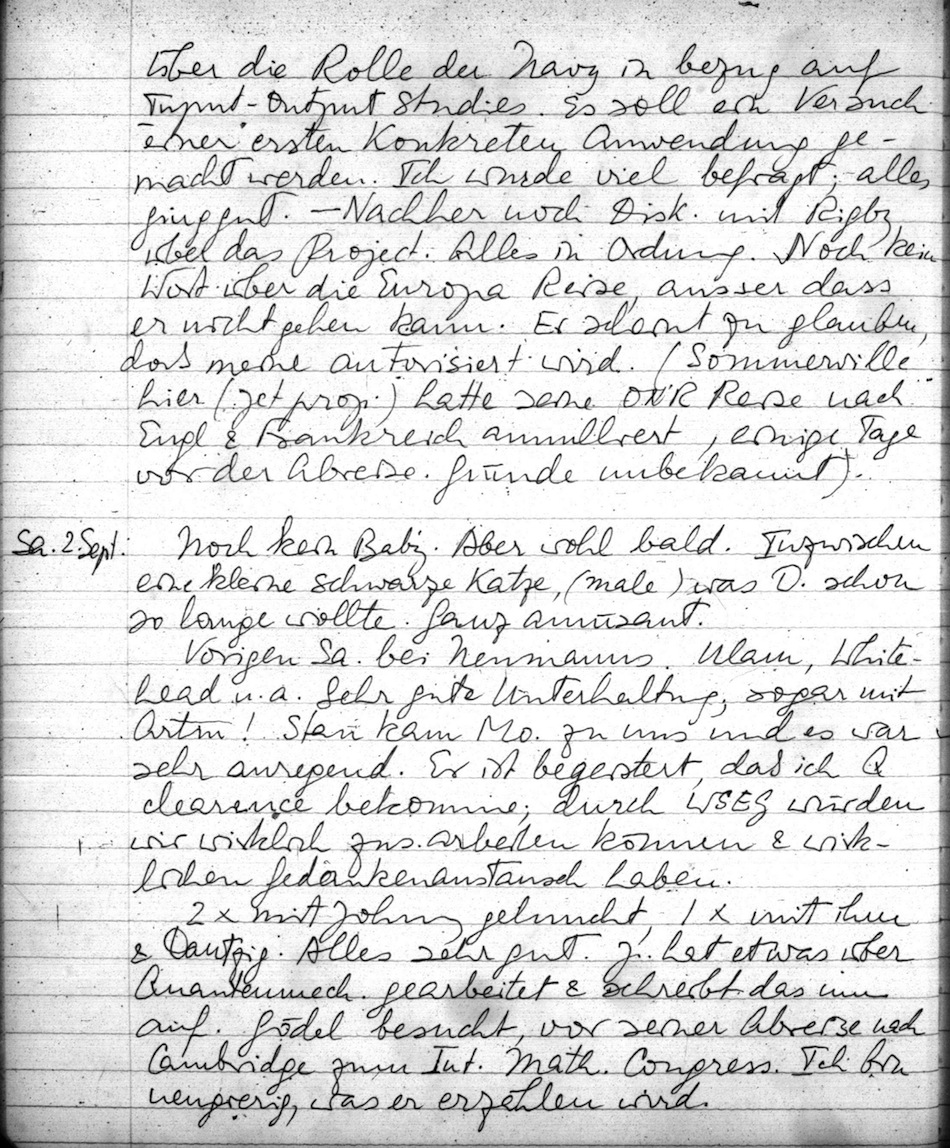 über die Rolle der Navy in bezug auf
Input-Output Studies. Es soll ein Versuch
einer ersten Konkreten Anwendung ge-
macht werden. Ich wurde viel befragt; alles
ging gut. — Nachher noch Disk. mit Rigby
über das Project. Alles in Ordnung. Noch kein
Wort über die Europa Reise, ausser dass
er nicht gehen kann. Er scheint zu glauben,
dass meine autorisiert wird. (Sommerville
hier (Jet proj.) hatte seine ONR Reise nach
Engl & Frankreich annulliert, einige Tage
vor der Abreise. Gründe unbekannt).
Sa. 2. Sept. Noch kein Baby. Aber wohl bald. Inzwischen
eine kleine schwarze Katze, (male) was D. schon
so lange wollte. Ganz amüsant.
Vorigen Sa. bei Neumanns. Ulam, White-
head u. a. Sehr gute Unterhaltung, sogar mit
Artin! Stan kam Mo. zu uns und es war
sehr anregend. Er ist begeistert, das ich Q
clearence bekomme; durch WSEG würden
wir wirklich zus. arbeiten können & wirk-
lichen Gedankenaustausch haben.
2 x mit Johnny geluncht, 1 x mit ihm
& Dantzig. Alles sehr gut. J. hat etwas über
Quantenmech. gearbeitet & schreibt das nun
auf. Gödel besucht, vor seiner Abreise nach
Cambridge zum Int. Math. Congress. Ich bin
neugierig, was er erzählen wird.